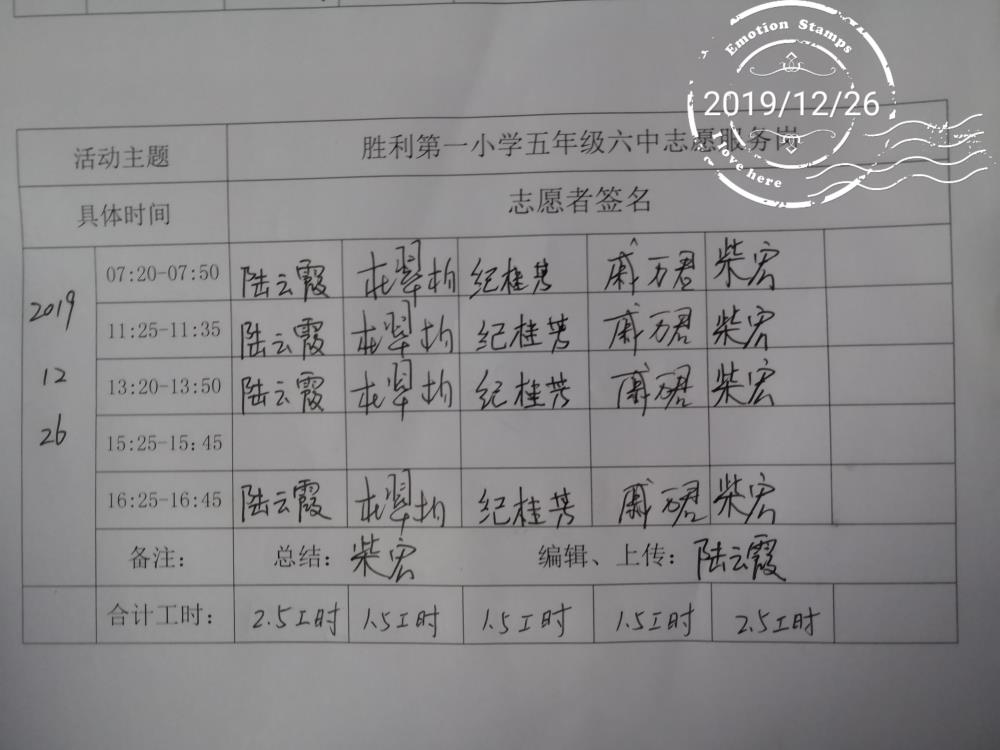 Emotion Stamps
2019/12/26
Love here
活动主题 胜利第一小学五年级六中志愿服务岗
具体时间 志愿者签名
2019 12 26
07:20-07:50 陆云霞 纪桂芳 戚万君 柴宏
11:25-11:35 陆云霞 纪桂芳 戚万君 柴宏
13:20-13:50 陆云霞 纪桂芳 戚万君 柴宏
15:25-15:45
16:25-16:45 陆云霞 纪桂芳 戚万君 柴宏
备注： 总结：柴宏 编辑、上传：陆云霞
合计工时： 2.5工时 1.5工时 1.5工时 1.5工时 2.5工时